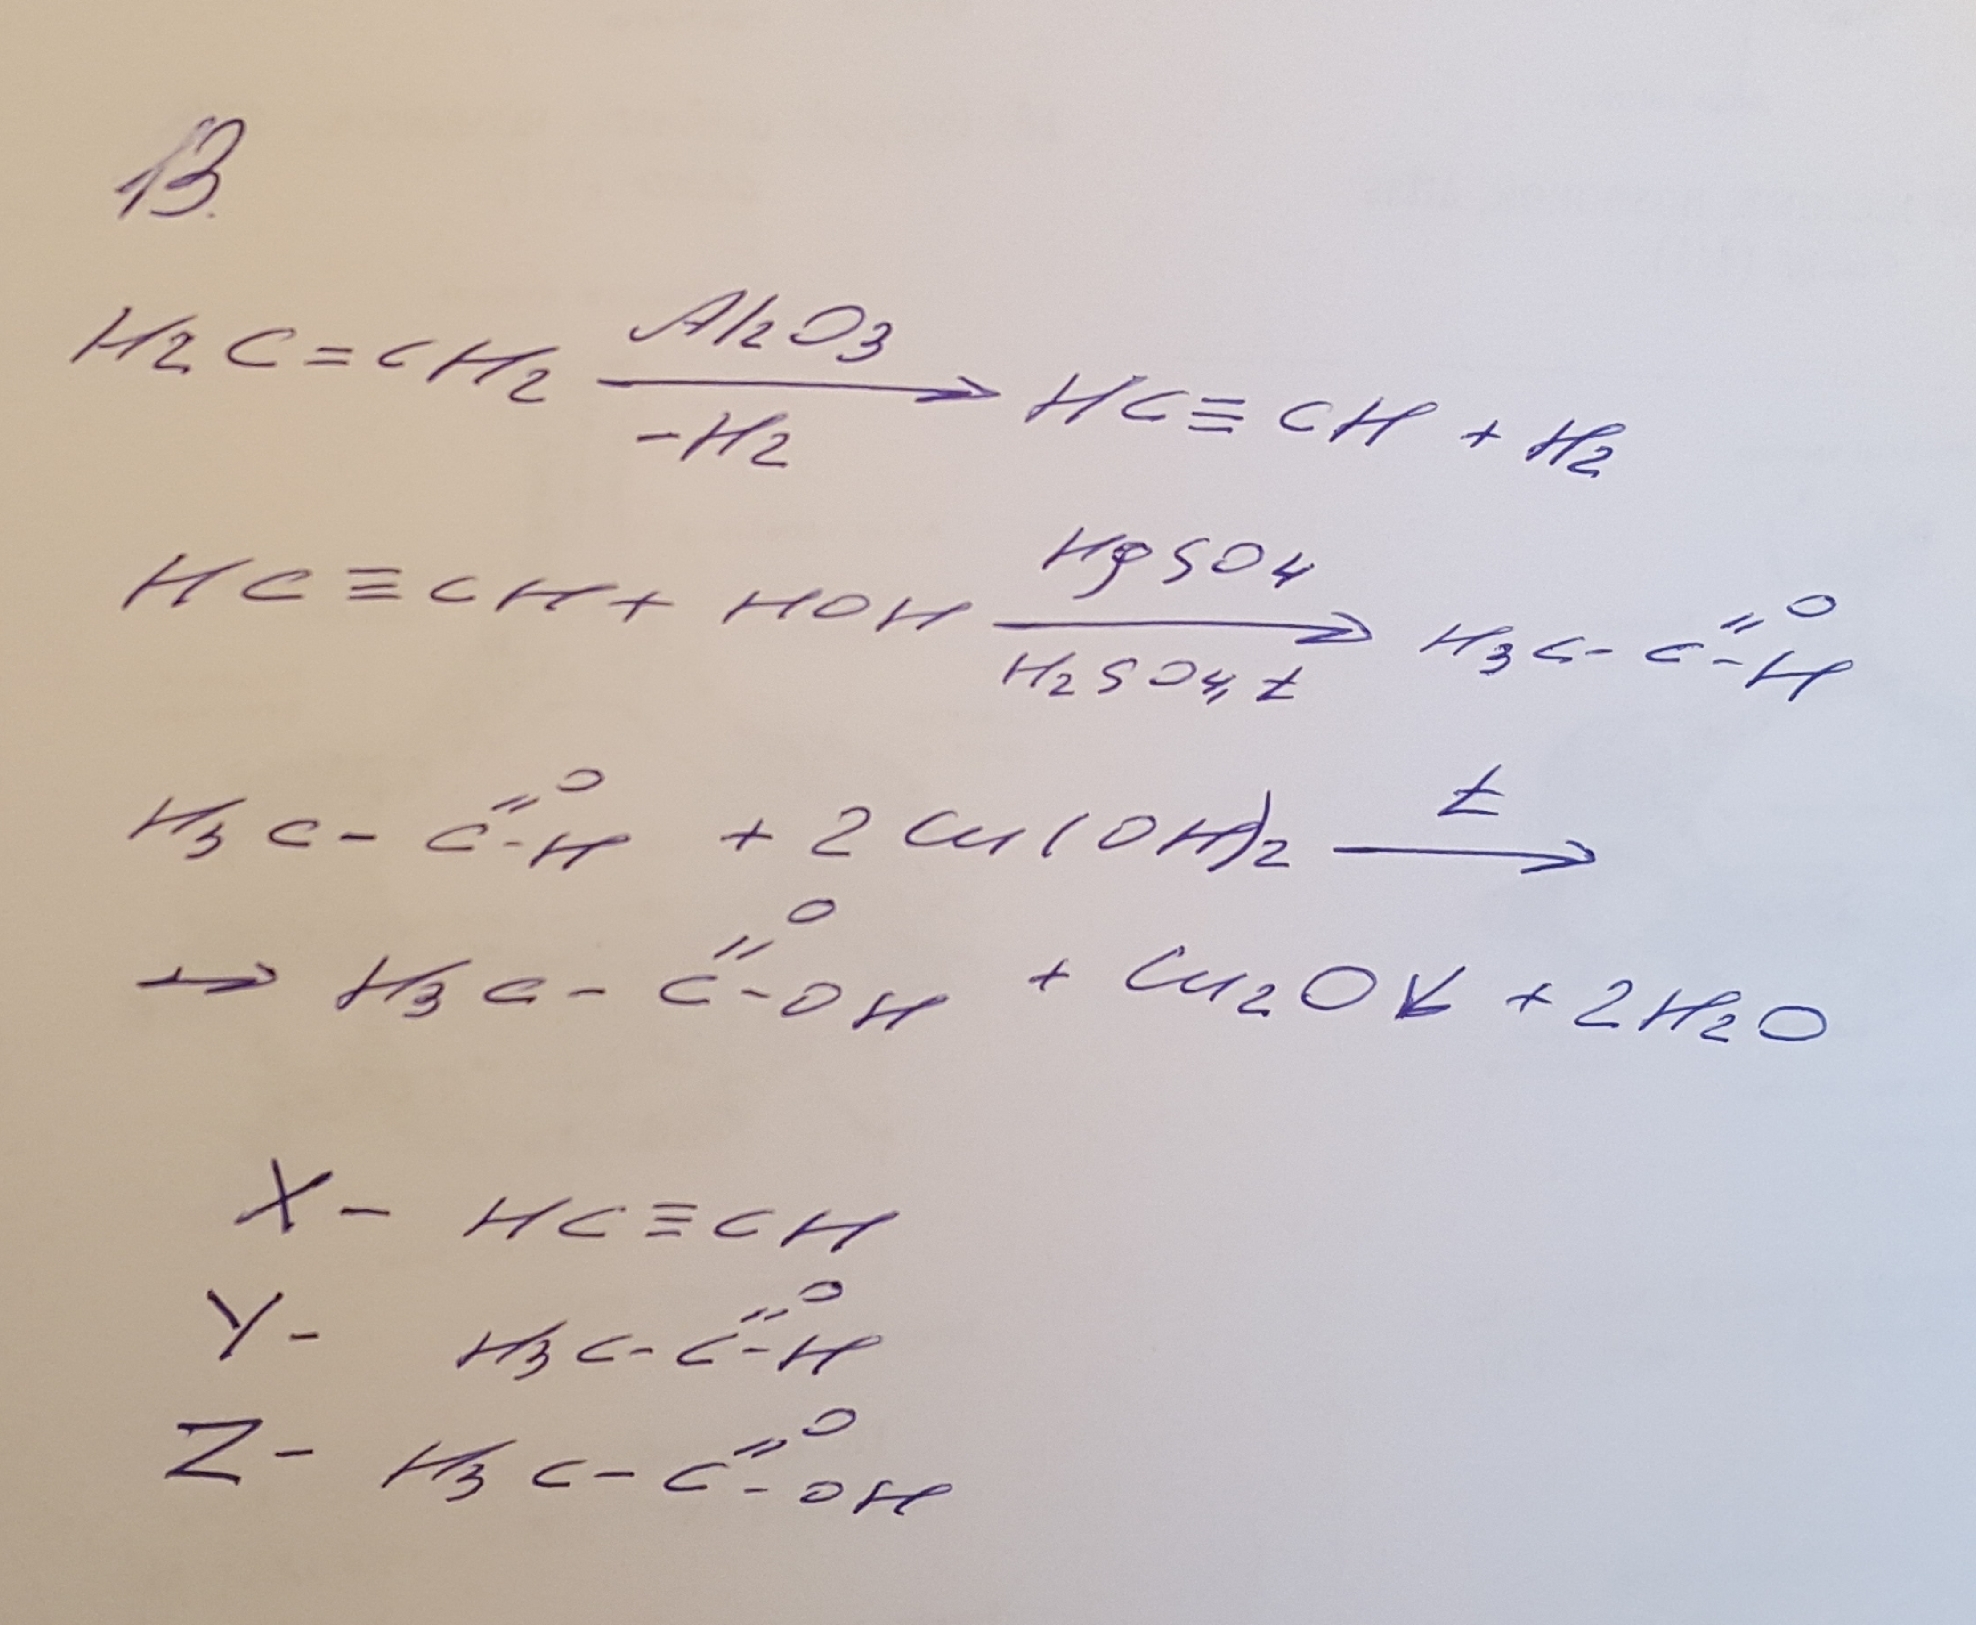 13.
H2C=CH2 Al2O3 → -H2 HC≡CH + H2
HC≡CH + HOH HgSO4 → H2SO4, t H3C-C=O-H
H3C-C=O-H + 2Cu(OH)2 t →
→ H3C-C=O-OH + Cu2O↓ + 2H2O
X- HC≡CH
Y- H3C-C=O-H
Z- H3C-C=O-OH